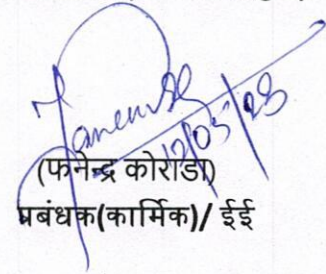 12/05/23
(फनेन्द्र कोरोडा)
प्रबंधक(कार्मिक)/ ईई